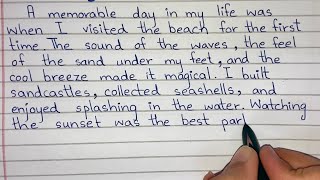 A memorable day in my life was
when I visited the beach for the first
time. The sound of the waves, the feel
of the sand under my feet, and the
cool breeze made it magical. I built
sandcastles, collected seashells, and
enjoyed splashing in the water. Watching
the sunset was the best par